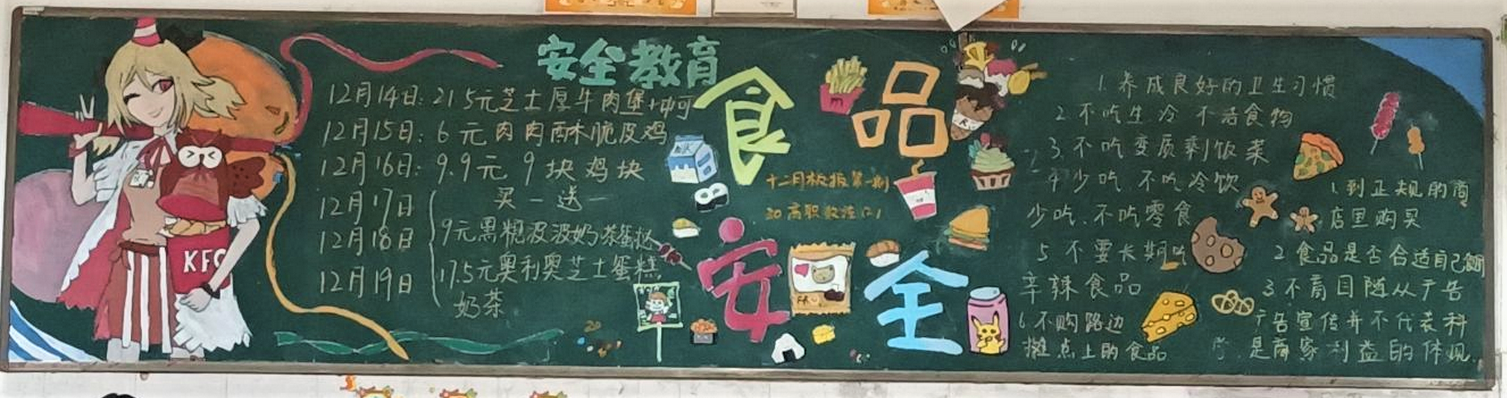 安全教育
12月14日:21.5元芝士厚牛肉堡+中可
12月15日:6元肉肉酥脆皮鸡
12月16日:9.9元9块鸡块
12月17日
12月18日
12月19日
买一送一
9元黑糖波波奶茶蛋挞
17.5元奥利奥芝士蛋糕
奶茶
KFC
食品
安全
十二月板报第一期
20高职
1.养成良好的卫生习惯
2.不吃生冷不洁食物
3.不吃变质剩饭菜
4.少吃、不吃冷饮
少吃、不吃零食
5.不要长期吃
辛辣食品
6.不购路边
摊点上的食品
1.到正规的商
店里购买
2.食品是否合适自己
3.不盲目随从广告
广告宣传并不代表科
是商家利益的体现